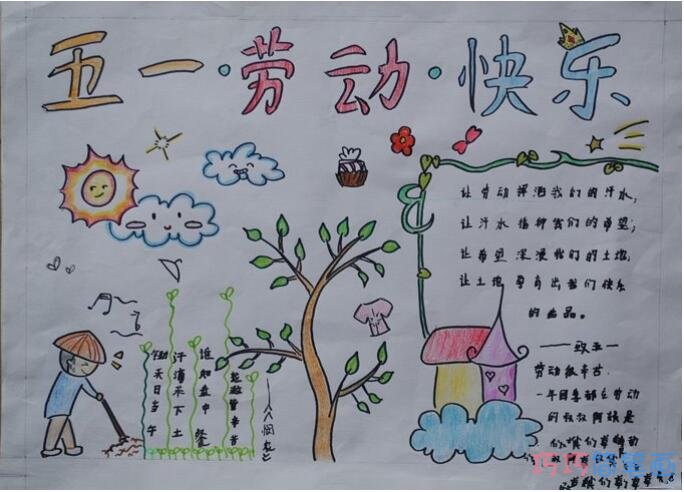 五一·劳动·快乐
让劳动挥洒我们的汗水,
让汗水播种我们的希望;
让希望深浸我们的土地,
让土地孕育出我们快乐
的果品。
——致五一
劳动很辛苦.
一年四季都在劳动
的叔叔阿姨是
锄禾日当午
汗滴禾下土
谁知盘中餐
粒粒皆辛苦
——《悯农》